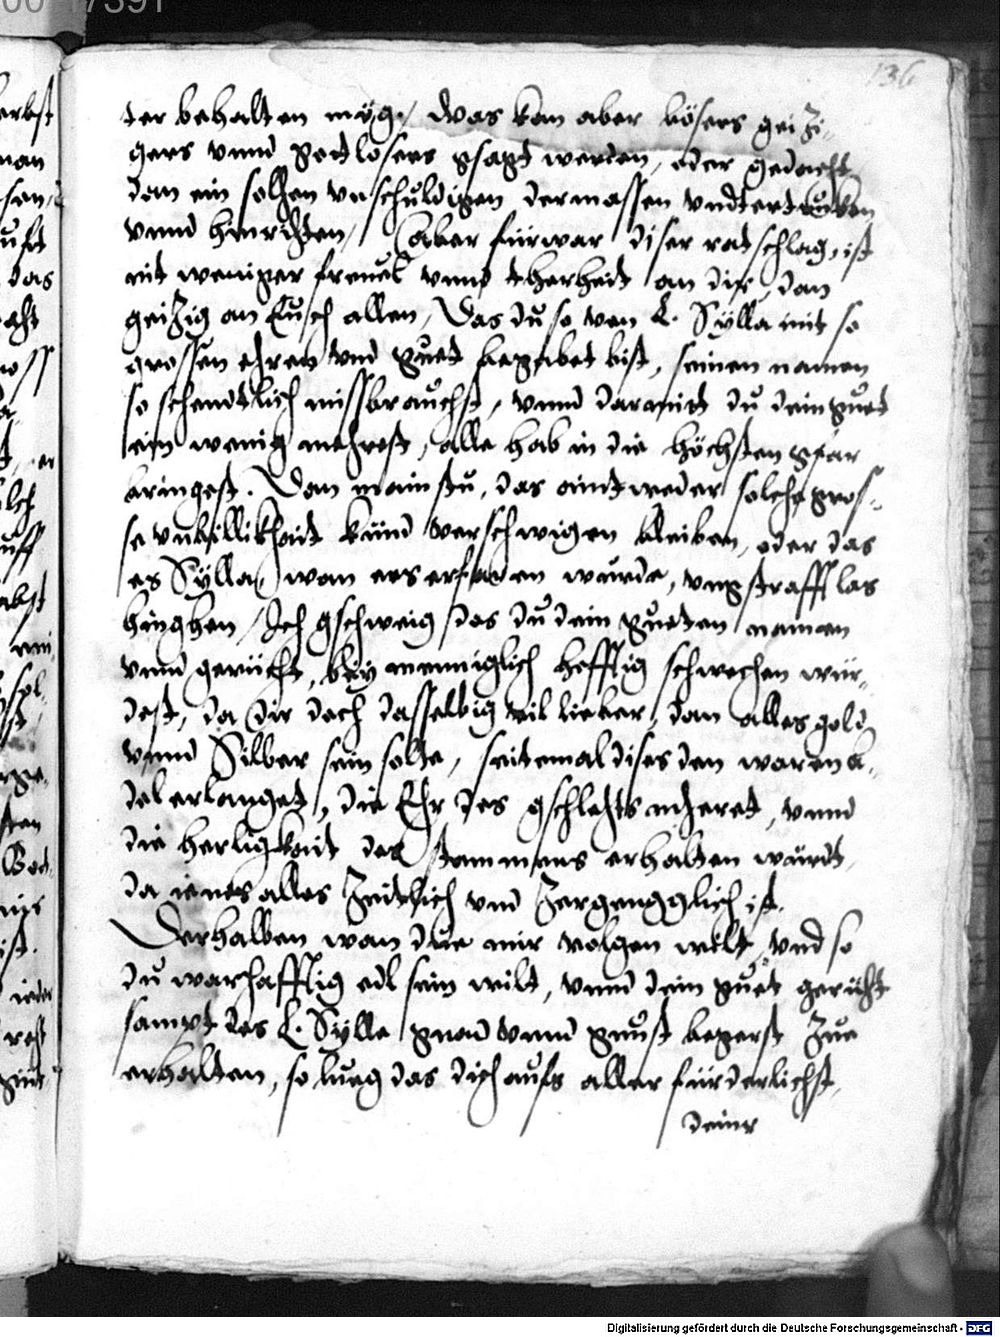 136
ter behalten müg. Was kan aber bösers geitzi-
gers vnnd gotlosers gsagt werden, oder gedacht
dan ein solhen vnschuldigen dermassen vndtertrucken
vnnd hinrichten, aber fürwar diser rat schlag, ist
nit weniger freuel vnnd thorheit an dir, dan
geitzig an Euch allen, Das du so von L. Sylla mit so
grossen ehren vnd guet begabet bist, seinen namen
so schendtlich missbrauchst, vnnd darmit du dein guet
ein wenig mehrest, alle hab in die höchsten gfar
bringest. Dan mainstu, das aintweder solche gros-
se vnbillikhait künd verschwigen bleiben, oder das
es Sylla, wan ers erfaren würde, vngstrafft las
hinghen, Ich gschweig das du dein gueten namen
vnnd gerücht, bey menniglich hefftig schwechen wür-
dest, da dir doch dasselbig vil lieber, dan alles gold
vnnd Silber sein solte, seitemal dises den waren a-
del erlanget, die Ehr des gschlehts mheret, vnnd
die herligkait des stammens erhalten würdt,
da ienes alles Zeitlich vnd Zergengglich ist.
Derhalben wan due mir volgen wilt, vnd so
du warhafftig edl sein wilt, vnnd dein guet gerücht
sampt des L. Sylla gnad vnnd gunst begerst Zue
erhalten, so lueg das dich aufs aller fürderlichst,
deinr
Digitalisierung gefördert durch die Deutsche Forschungsgemeinschaft - DFG